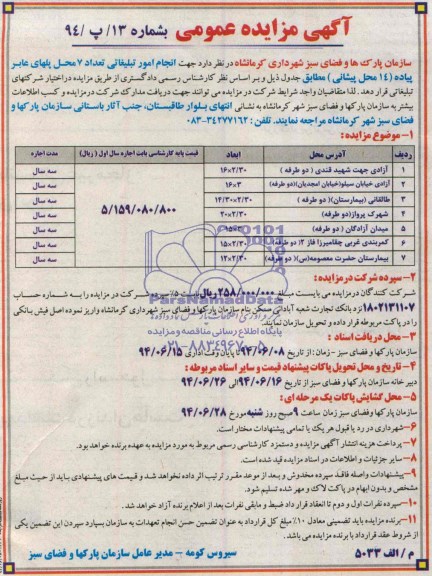 آگهی مزایده عمومی بشماره ۱۳/ پ /۹۴
سازمان پارک ها و فضای سبز شهرداری کرمانشاه در نظر دارد جهت انجام امور تبلیغاتی تعداد ۷ محل پلهای عابر
پیاده (۱۴ محل پیشانی) مطابق جدول ذیل و بر اساس نظر کارشناس رسمی دادگستری از طریق مزایده در اختیار شرکتهای
تبلیغاتی قرار دهد. لذا متقاضیان واجد شرایط شرکت در مزایده می توانند جهت دریافت مدارک شرکت در مزایده و کسب اطلاعات
بیشتر به سازمان پارکها و فضای سبز شهر کرمانشاه به نشانی انتهای بلوار طاقبستان، جنب آثار باستانی سازمان پارکها و
فضای سبز شهر کرمانشاه مراجعه نمایند. تلفن: ۳۴۲۷۷۱۶۲-۰۸۳
۱- موضوع مزایده:
ردیف آدرس محل ابعاد قیمت پایه کارشناسی بابت اجاره سال اول (ریال) مدت اجاره
۱ آزادی جهت شهید قندی (دو طرفه) ۱۶×۲/۳۰ ۵/۱۵۹/۰۸۰/۸۰۰ سه سال
۲ آزادی خیابان سیلو(خیابان امجدیان)(دو طرفه) ۱۶×۳ سه سال
۳ طالقانی (بیمارستان)(دو طرفه) ۱۴/۳۰×۲/۳۰ سه سال
۴ شهرک پرواز(دو طرفه) ۲۰×۲/۳۰ سه سال
۵ میدان آزادگان (دو طرفه) ۱۵×۳ سه سال
۶ کمربندی غربی چقامیرزا فاز ۲( دو طرفه) ۱۵×۲/۳۰ سه سال
۷ بیمارستان حضرت معصومه(س)( دو طرفه) ۱۲×۲/۳۰ سه سال
۲- سپرده شرکت در مزایده:
شرکت کنندگان در مزایده می بایست مبلغ ۲۵۸/۰۰۰/۰۰۰ ریال بابت ۵٪ سپرده شرکت در مزایده را به شماره حساب
۱۸۰۲۱۳۱۱۰۷ نزد بانک تجارت شعبه آبادانی مسکن بنام سازمان پارکها و فضای سبز شهرداری کرمانشاه واریز نموده اصل فیش بانکی
را در پاکت مربوطه قرار داده و تحویل سازمان نمایند.
۳- محل دریافت اسناد:
سازمان پارکها و فضای سبز - زمان: از تاریخ ۹۴/۰۶/۰۸ تا پایان وقت اداری ۹۴/۰۶/۱۵
۴- تاریخ و محل تحویل پاکات پیشنهاد قیمت و سایر اسناد مربوطه:
دبیر خانه سازمان پارکها و فضای سبز از تاریخ ۹۴/۰۶/۱۶ الی ۹۴/۰۶/۲۶
۵- محل گشایش پاکات یک مرحله ای:
سازمان پارکها و فضای سبز زمان ساعت ۹ صبح روز شنبه مورخ ۹۴/۰۶/۲۸
۶- شهرداری در رد یا قبول هر یک یا تمامی پیشنهادات مختار است.
۷- پرداخت هزینه انتشار آگهی مزایده و دستمزد کارشناسی رسمی مربوط به مورد مزایده به عهده برنده خواهد بود.
۸- سایر جزئیات و اطلاعات در اسناد مزایده قید شده است.
۹- پیشنهادات واصله فاقد سپرده مخدوش و بعد از موعد مقرر ترتیب اثر داده نخواهد شد و قیمت های پیشنهادی باید از حیث مبلغ
مشخص و بدون ابهام در پاکت لاک و مهر شده تسلیم شود.
۱۰- سپرده نفرات اول و دوم تا انعقاد قرار داد ضبط و مابقی نفرات بعد از اعلام برنده آزاد خواهد شد.
۱۱- برنده مزایده باید تضمینی معادل ۱۰٪ مبلغ کل قرارداد به عنوان تضمین حسن انجام تعهدات به سازمان بسپارد سپردن این تضمین یکی
از شروط عقد قرارداد با برنده مزایده می باشد.
م / الف ۵۰۳۳ سیروس کومه - مدیر عامل سازمان پارکها و فضای سبز
ParsNamadData
پایگاه اطلاع رسانی مناقصه و مزایده
۰۲۱-۸۸۳۴۹۶۷۰-۵